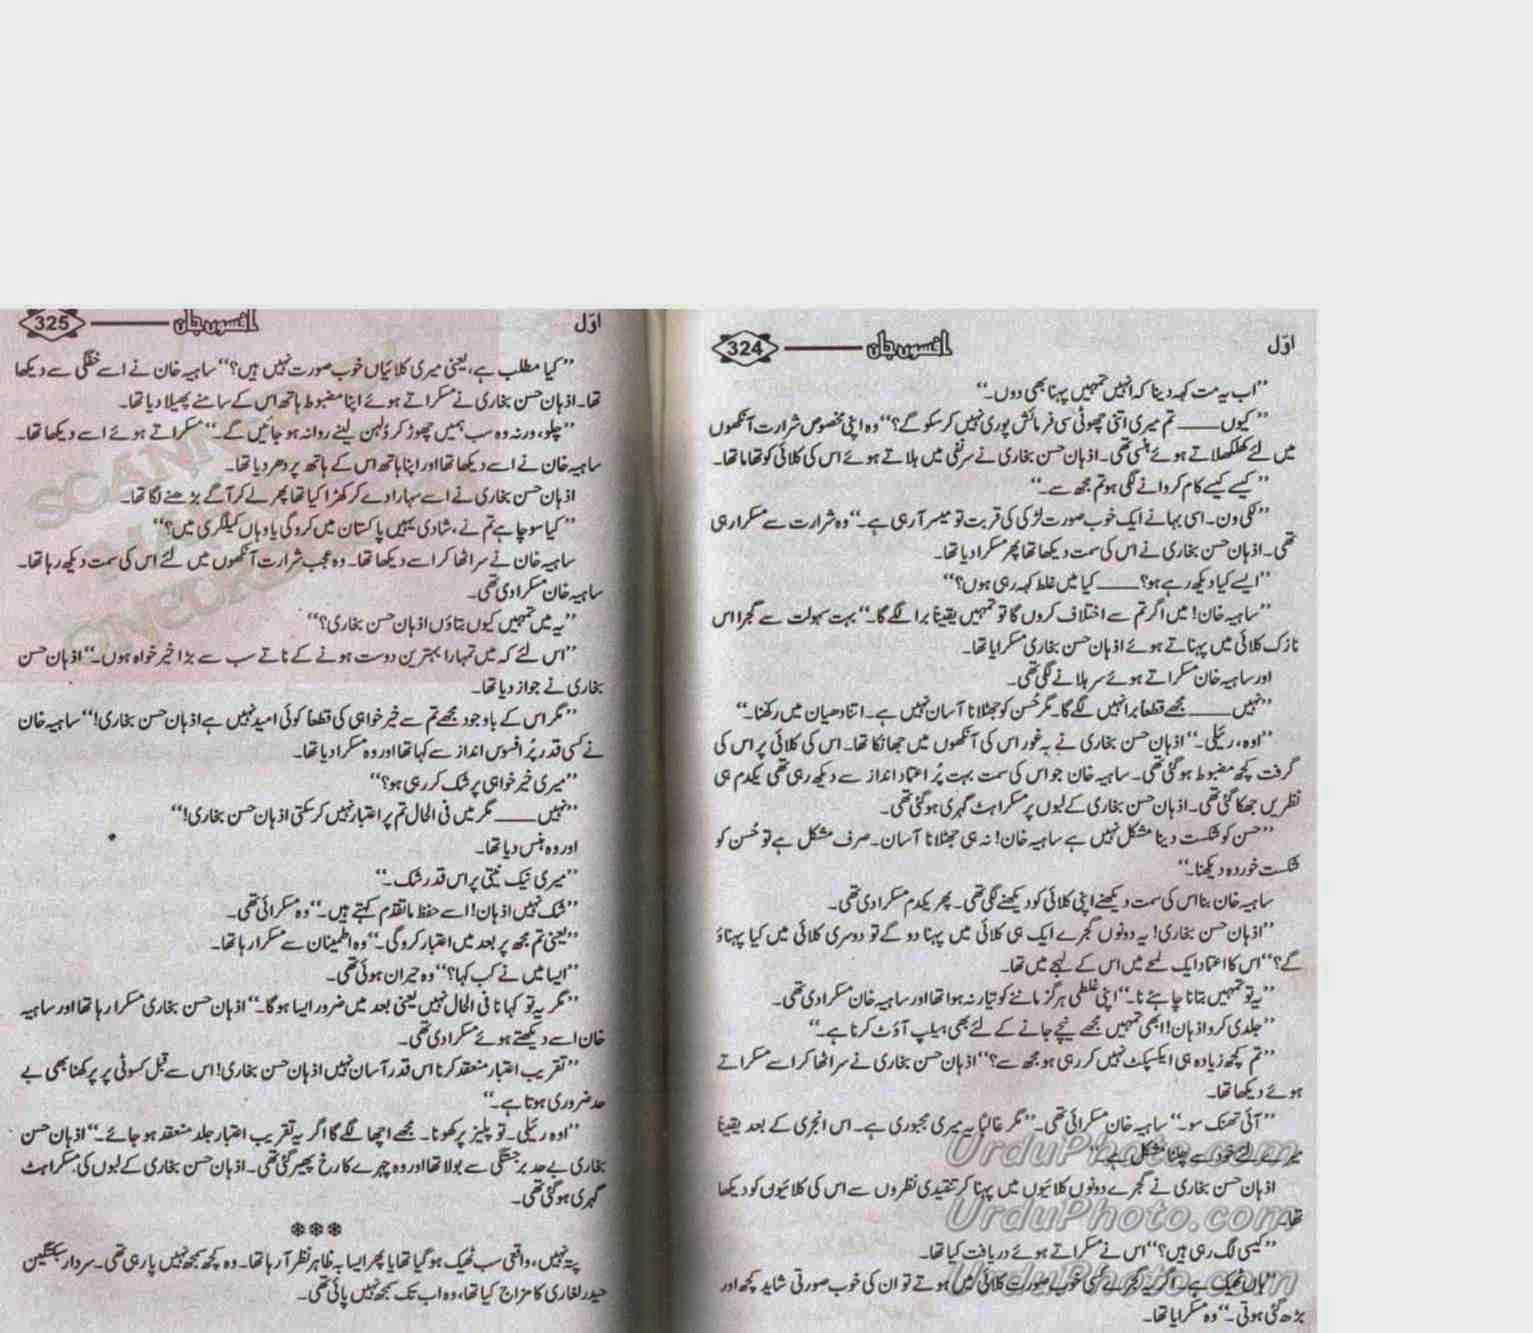 اوّل افسونِ جان 324
”اب یہ مت کہہ دینا کہ انہیں تمہیں پہنا بھی دوں۔“
”کیوں ــــــ تم میری اتنی چھوٹی سی فرمائش پوری نہیں کر سکو گے؟“ وہ اپنی مخصوص شرارت آنکھوں
میں لئے کھلکھلاتے ہوئے ہنسی تھی۔ اذہان حسن بخاری نے سر نفی میں ہلاتے ہوئے اس کی کلائی کو تھاما تھا۔
”کیسے کیسے کام کروانے لگی ہو تم مجھ سے۔“
”لکی ون۔ اسی بہانے ایک خوب صورت لڑکی کی قربت تو میسر آ رہی ہے۔“ وہ شرارت سے مسکرا رہی
تھی۔ اذہان حسن بخاری نے اس کی سمت دیکھا تھا پھر مسکرا دیا تھا۔
”ایسے کیا دیکھ رہے ہو؟ ــــــ کیا میں غلط کہہ رہی ہوں؟“
”ساہیہ خان! میں اگر تم سے اختلاف کروں گا تو تمہیں یقیناً برا لگے گا۔“ بہت سہولت سے گجرا اس
نازک کلائی میں پہناتے ہوئے اذہان حسن بخاری مسکرایا تھا۔
اور ساہیہ خان مسکراتے ہوئے سر ہلانے لگی تھی۔
”نہیں ــــــ مجھے قطعاً برا نہیں لگے گا۔ مگر حُسن کو جھٹلانا آسان نہیں ہے۔ اتنا دھیان میں رکھنا۔“
”اوہ، رئیلی۔“ اذہان حسن بخاری نے بہ غور اس کی آنکھوں میں جھانکا تھا۔ اس کی کلائی پر اس کی
گرفت کچھ مضبوط ہو گئی تھی۔ ساہیہ خان جو اس کی سمت بہت پُر اعتماد انداز سے دیکھ رہی تھی یکدم ہی
نظریں جھکا گئی تھی۔ اذہان حسن بخاری کے لبوں پر مسکراہٹ گہری ہو گئی تھی۔
”حسن کو شکست دینا مشکل نہیں ہے ساہیہ خان! نہ ہی جھٹلانا آسان۔ صرف مشکل ہے تو حُسن کو
شکست خوردہ دیکھنا۔“
ساہیہ خان بنا اس کی سمت دیکھنے اپنی کلائی کو دیکھنے لگی تھی۔ پھر یکدم مسکرا دی تھی۔
”اذہان حسن بخاری! یہ دونوں گجرے ایک ہی کلائی میں پہنا دو گے تو دوسری کلائی میں کیا پہناؤ
گے؟“ اس کا اعتماد ایک لمحے میں اس کے لہجے میں تھا۔
”یہ تو تمہیں بتانا چاہئے نا۔“ اپنی غلطی ہرگز ماننے کو تیار نہ ہوا تھا اور ساہیہ خان مسکرا دی تھی۔
”جلدی کرو اذہان! ابھی تمہیں مجھے نیچے جانے کے لئے بھی ہیلپ آؤٹ کرنا ہے۔“
”تم کچھ زیادہ ہی ایکسپکٹ نہیں کر رہی ہو مجھ سے؟“ اذہان حسن بخاری نے سر اٹھا کر اسے مسکراتے
ہوئے دیکھا تھا۔
”آئی تھنک سو۔“ ساہیہ خان مسکرائی تھی۔ ”مگر غالباً یہ میری مجبوری ہے۔ اس انجری کے بعد یقیناً
میرے لئے خود سے چلنا مشکل ہے۔“
اذہان حسن بخاری نے گجرے دونوں کلائیوں میں پہنا کر تنقیدی نظروں سے اس کی کلائیوں کو دیکھا
تھا۔
”کیسی لگ رہی ہیں؟“ اس نے مسکراتے ہوئے دریافت کیا تھا۔
”ہاں ٹھیک ہے۔ اگر یہ گجرے کسی خوب صورت کلائی میں ہوتے تو ان کی خوب صورتی شاید کچھ اور
بڑھ گئی ہوتی۔“ وہ مسکرایا تھا۔
UrduPhoto.com
UrduPhoto.com
UrduPhoto.com
اوّل افسونِ جان 325
”کیا مطلب ہے، یعنی میری کلائیاں خوب صورت نہیں ہیں؟“ ساہیہ خان نے اسے خفگی سے دیکھا
تھا۔ اذہان حسن بخاری نے مسکراتے ہوئے اپنا مضبوط ہاتھ اس کے سامنے پھیلا دیا تھا۔
”چلو، ورنہ وہ سب ہمیں چھوڑ کر دُلہن لینے روانہ ہو جائیں گے۔“ مسکراتے ہوئے اسے دیکھا تھا۔
ساہیہ خان نے اسے دیکھا تھا اور اپنا ہاتھ اس کے ہاتھ پر دھر دیا تھا۔
اذہان حسن بخاری نے اسے سہارا دے کر کھڑا کیا تھا پھر لے کر آگے بڑھنے لگا تھا۔
”کیا سوچا ہے تم نے، شادی یہیں پاکستان میں کرو گی یا وہاں کیلگری میں؟“
ساہیہ خان نے سر اٹھا کر اسے دیکھا تھا۔ وہ عجب شرارت آنکھوں میں لئے اس کی سمت دیکھ رہا تھا۔
ساہیہ خان مسکرا دی تھی۔
”یہ میں تمہیں کیوں بتاؤں اذہان حسن بخاری؟“
”اس لئے کہ میں تمہارا بہترین دوست ہونے کے ناتے سب سے بڑا خیر خواہ ہوں۔“ اذہان حسن
بخاری نے جواز دیا تھا۔
”مگر اس کے باوجود مجھے تم سے خیر خواہی کی قطعاً کوئی امید نہیں ہے اذہان حسن بخاری!“ ساہیہ خان
نے کسی قدر پُر افسوس انداز سے کہا تھا اور وہ مسکرا دیا تھا۔
”میری خیر خواہی پر شک کر رہی ہو؟“
”نہیں ــــــ مگر میں فی الحال تم پر اعتبار نہیں کر سکتی اذہان حسن بخاری!“
اور وہ ہنس دیا تھا۔
”میری نیک نیتی پر اس قدر شک۔“
”شک نہیں اذہان! اسے حفظ ماتقدم کہتے ہیں۔“ وہ مسکرائی تھی۔
”یعنی تم مجھ پر بعد میں اعتبار کرو گی۔“ وہ اطمینان سے مسکرا رہا تھا۔
”ایسا میں نے کب کہا؟“ وہ حیران ہوئی تھی۔
”مگر یہ تو کہا نا فی الحال نہیں یعنی بعد میں ضرور ایسا ہو گا۔“ اذہان حسن بخاری مسکرا رہا تھا اور ساہیہ
خان اسے دیکھتے ہوئے مسکرا دی تھی۔
”تقریب اعتبار منعقد کرنا اس قدر آسان نہیں اذہان حسن بخاری! اس سے قبل کسوٹی پر پرکھنا بھی بے
حد ضروری ہوتا ہے۔“
”اوہ رئیلی۔ تو پلیز پرکھو نا۔ مجھے اچھا لگے گا اگر یہ تقریب اعتبار جلد منعقد ہو جائے۔“ اذہان حسن
بخاری بے حد برجستگی سے بولا تھا اور وہ چہرے کا رخ پھیر گئی تھی۔ اذہان حسن بخاری کے لبوں کی مسکراہٹ
گہری ہو گئی تھی۔
❋❋❋
پتہ نہیں، واقعی سب ٹھیک ہو گیا تھا یا پھر ایسا بہ ظاہر نظر آ رہا تھا۔ وہ کچھ سمجھ نہیں پا رہی تھی۔ سردار سبکتگین
حیدر لغاری کا مزاج کیا تھا، وہ اب تک سمجھ نہیں پائی تھی۔
SCANNED